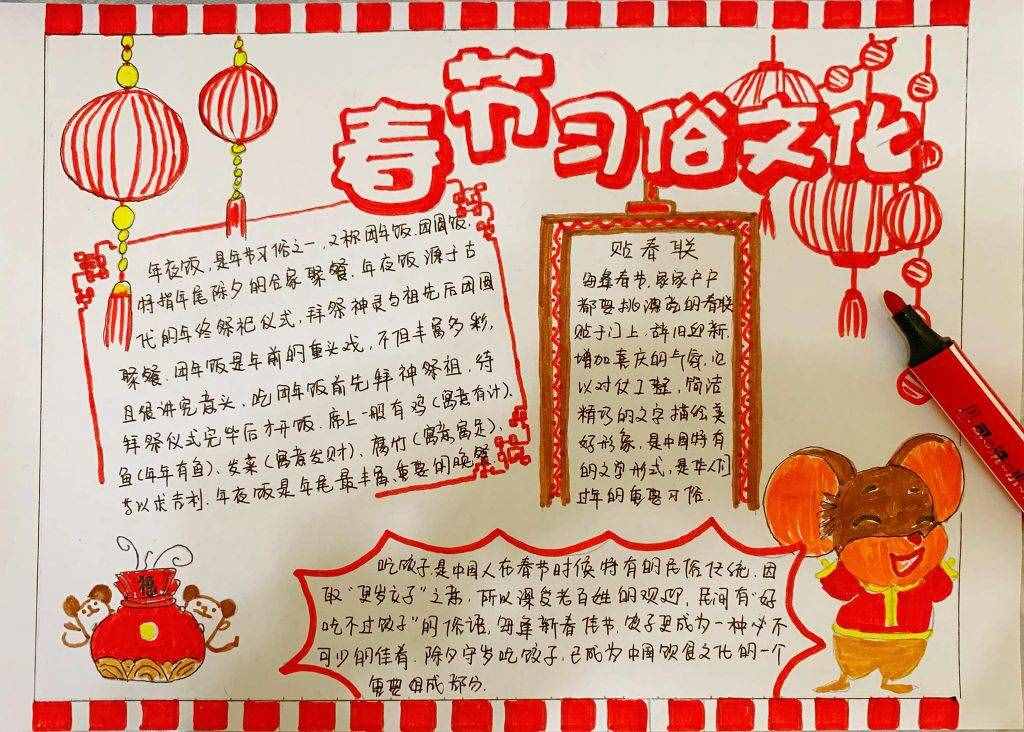 春节习俗文化
年夜饭,是年节习俗之一,又称团年饭.团圆饭.
特指年尾除夕的合家聚餐.年夜饭源于古
代的年终祭祀仪式,拜祭神灵与祖先后团圆
聚餐.团年饭是年前的重头戏,不但丰富多彩,
且很讲究意头,吃团年饭前先拜神祭祖,待
拜祭仪式完毕后才开饭.席上一般有鸡(寓意有计).
鱼(年年有鱼).发菜(寓意发财).腐竹(寓意富足).
等以求吉利.年夜饭是年尾最丰富、重要的晚餐
贴春联
每逢春节,家家户户
都要挑漂亮的春联
贴于门上,辞旧迎新,
增加喜庆的气氛,它
以对仗工整,简洁
精巧的文字描绘美
好形象,是中国特有
的文学形式,是华人们
过年的重要习俗.
吃饺子,是中国人在春节时候特有的民俗传统.因
取"更岁交子"之意,所以深受老百姓的欢迎,民间有"好
吃不过饺子"的俗语,每逢新春佳节,饺子更成为一种必不
可少的佳肴.除夕守岁吃饺子,已成为中国饮食文化的一个
重要组成部分.
福